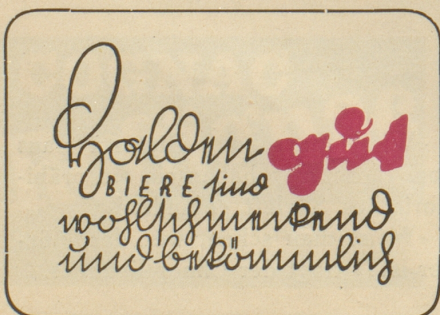 Haldengut
BIERE sind
wohlschmeckend
und bekömmlich